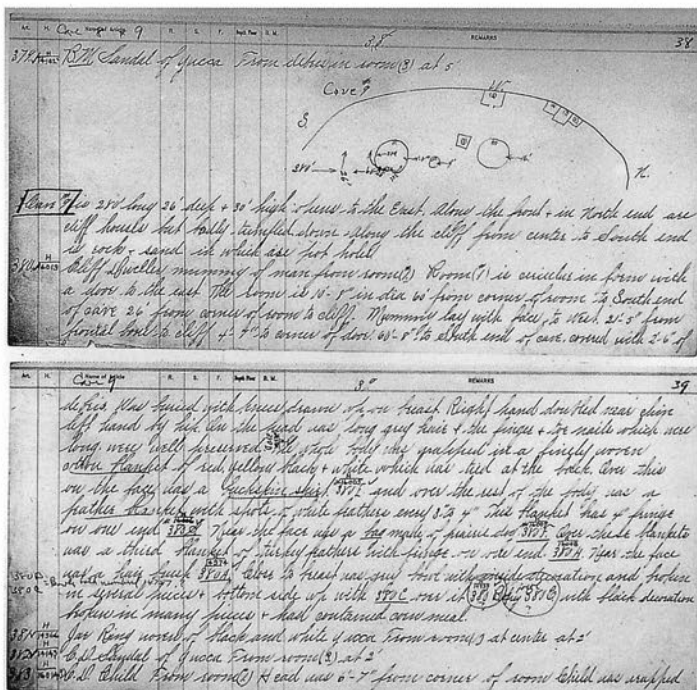 Art. H. Name of Article R. S. F. Depth Floor D. W. REMARKS
Cave # 9 38 38
379 B.M. Sandal of yucca From debris in room (3) at 5'
Cave # 9
S.
W.
N.
280'
Cave # 9 is 280' long 26' deep + 30' high opens to the East. Along the front + in North end are
cliff houses but badly tumbled down along the cliff from center to South end
is rock + sand in which are pot holes
380 Cliff Dweller mummy of man from room (2) Room (1) is circular in form with
a door to the east The room is 10'-8" in dia 60' from corner of room to South end
of cave 26' from corner of room to cliff. Mummy lay with face to West. 21'-5" from
frontal bone to cliff 4'-7" to corner of door. 60'-8" to South end of cave. covered with 2'-6" of
Art. H. Name of Article R. S. F. Depth Floor D. W. REMARKS
Cave 9 39
debris. Was buried with knees drawn up on breast Right hand doubled near chin
left hand by hip. On the head was long grey hair + the finger + toe nails which were
long were well preserved. The whole body was wrapped in a finely woven
cotton blanket of red, yellow, black + white which was tied at the back. Over this
on the face was a Buckskin shirt and over the rest of the body was a
feather blanket with spots of white feathers every 3 to 4" This blanket has 4" fringe
on one end Near the face was a bag made of prairie dog Over these blankets
was a third blanket of turkey feathers with fringe on one end 380 H. Near the face
was a hair brush 380 A, Close to breast was grey bowl with inside decoration and broken
in several pieces + bottom side up with 380 C over it with black decoration
broken in many pieces + had contained corn meal.
381 Jar Ring woven of black and white yucca From room (3) at center at 2'
382 C.D. Sandal of yucca From room (2) at 2'
383 C.D. Child From room (2) Head was 6'-7" from corner of room Child was wrapped